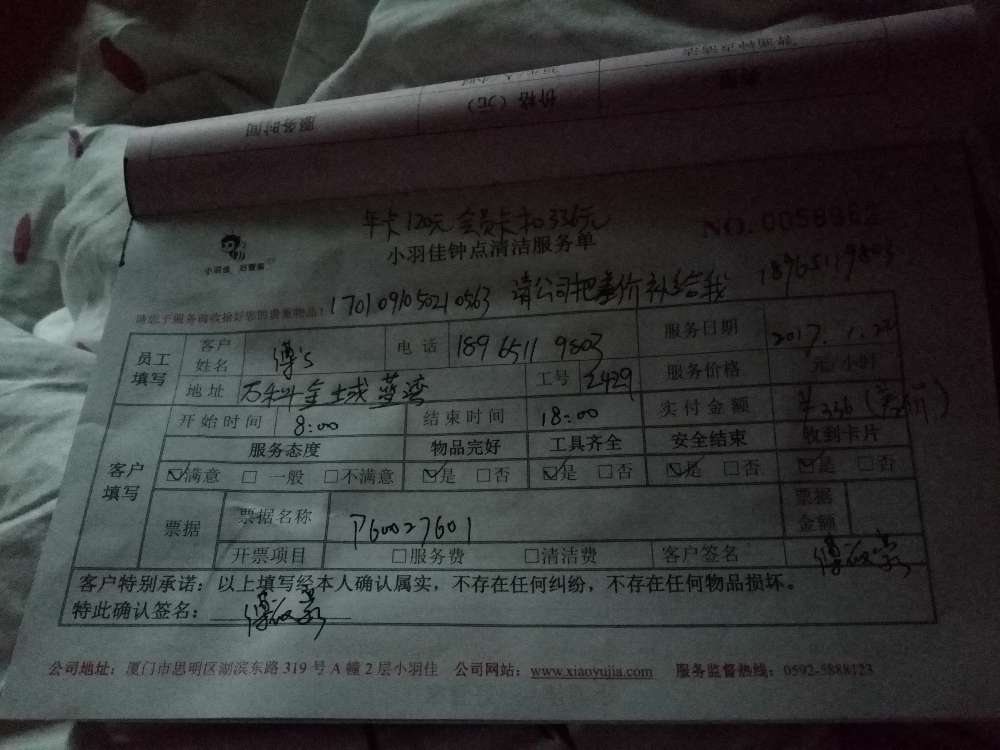 服务时间 价格（元）
年卡120元 会员卡扣336元
小羽佳 NO.0058962
小羽佳钟点清洁服务单
请您于服务前收拾好您的贵重物品！ 1701091050210563 请公司把差价补给我 18965119803
员工填写 客户姓名 傅's 电话 18965119803 服务日期 2017.1.22
地址 万科金域蓝湾 工号 2429 服务价格 元/小时
客户填写 开始时间 8:00 结束时间 18:00 实付金额 ￥336
服务态度 物品完好 工具齐全 安全结束 收到卡片
☑满意 □一般 □不满意 ☑是 □否 ☑是 □否 ☑是 □否 ☑是 □否
票据 票据名称 P60027601 票据金额
开票项目 □服务费 □清洁费 客户签名 傅
客户特别承诺：以上填写经本人确认属实，不存在任何纠纷，不存在任何物品损坏。
特此确认签名： 傅
公司地址：厦门市思明区湖滨东路 319 号 A 幢 2 层小羽佳 公司网站：www.xiaoyujia.com 服务监督热线：0592-5888123